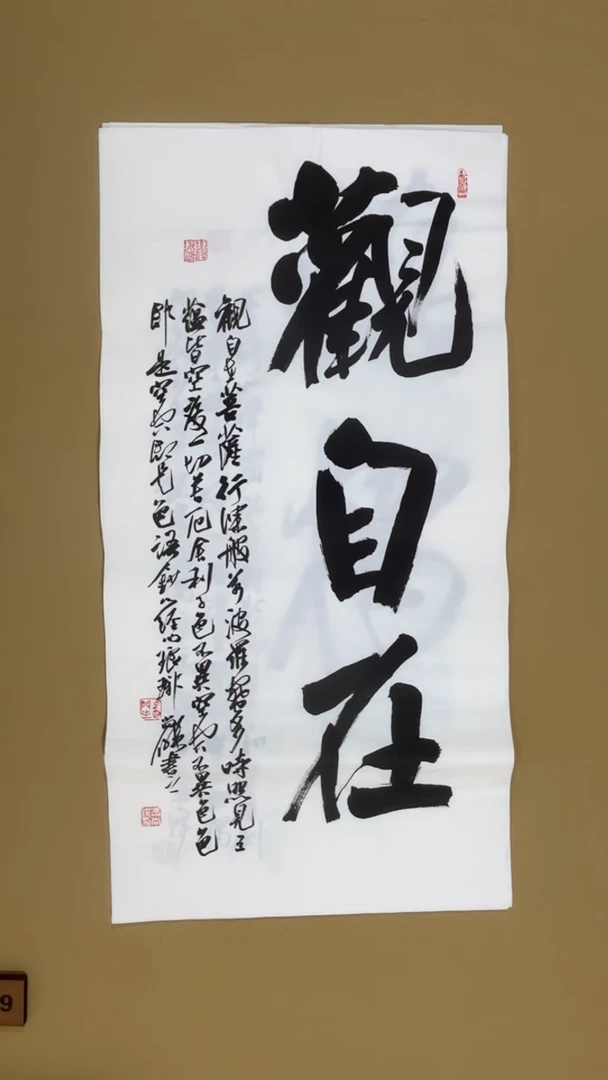 觀自在
觀自在菩薩行深般若波羅蜜多時照見五
蘊皆空度一切苦厄舍利子色不異空空不異色色
即是空空即是色語錄心經句
書
9